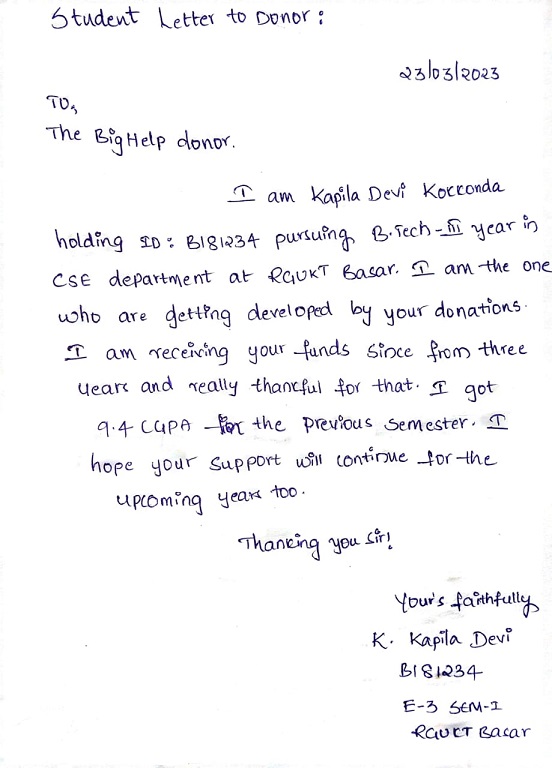 Student Letter to Donor :
23/03/2023
To,
The Big Help donor.
I am Kapila Devi Korronda
holding ID : B181234 pursuing B.Tech-III year in
CSE department at RGUKT Basar. I am the one
who are getting developed by your donations.
I am receiving your funds since from three
years and really thankful for that. I got
9.4 CGPA for the previous semester. I
hope your support will continue for the
upcoming years too.
Thanking you sir!
Your's faithfully
K. Kapila Devi
B181234
E-3 SEM-I
RGUKT Basar